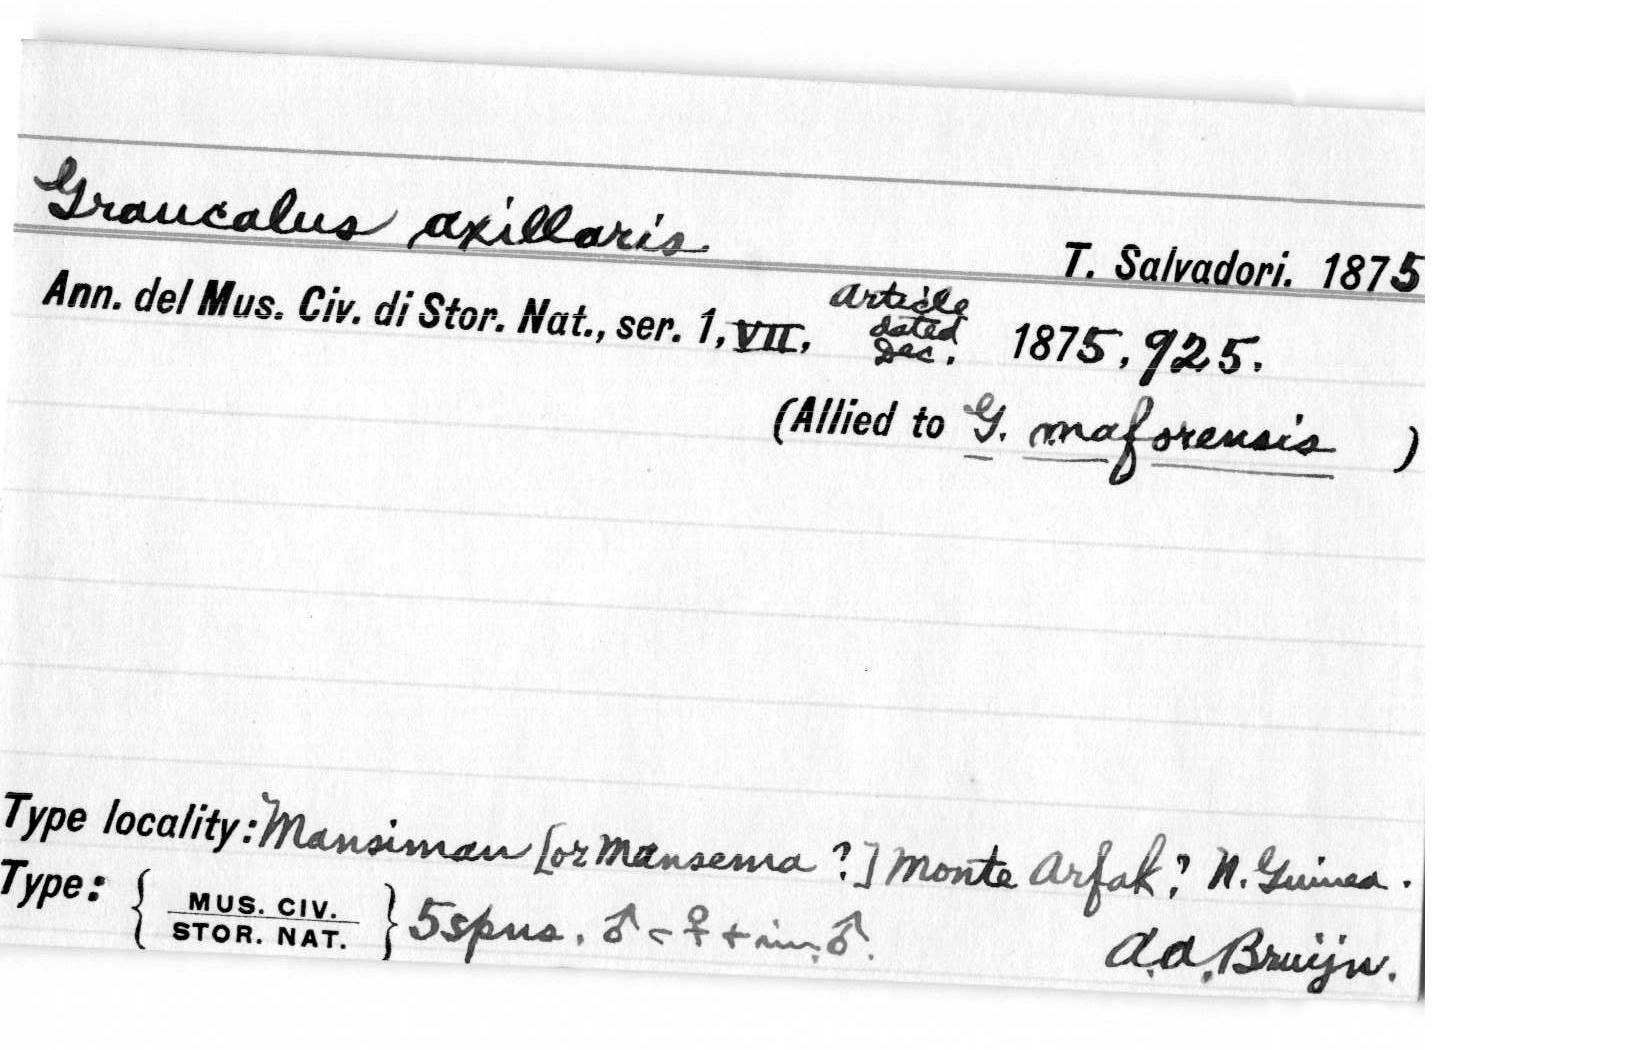 Graucalus axillaris
T. Salvadori. 1875
Ann. del Mus. Civ. di Stor. Nat., ser. 1, VII, Article dated Dec. 1875, 925.
(Allied to G. maforensis )
Type locality: Mansiman [or Mansema ?] Monte Arfak? N. Guinea.
Type: { MUS. CIV. STOR. NAT. } 5 spns. ♂ - ♀ + im. ♂.
A.A. Bruijn.